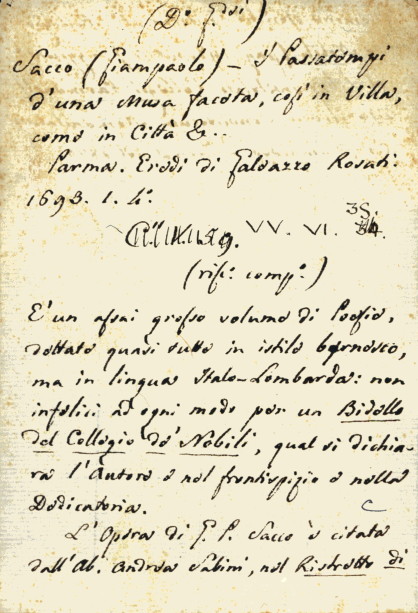 (D.º E.rsi)
Sacco (Giampaolo) – i Passatempi
d'una Musa faceta, così in Villa,
come in Città &..
Parma. Eredi di Galeazzo Rosati.
1693. 1. 4.º
VV. VI. 35.
(rife. comp.º)
E' un assai grosso volume di Poesie,
dettate quasi tutte in istile bernesco,
ma in lingua Italo-Lombarda: non
infelici ad ogni modo per un Bidello
del Collegio de' Nobili, qual si dichia-
ra l'Autore e nel frontispizio e nella
Dedicatoria.
L'Opera di G. P. Sacco è citata
dall'Ab. Andrea Rubini, nel Ristretto di